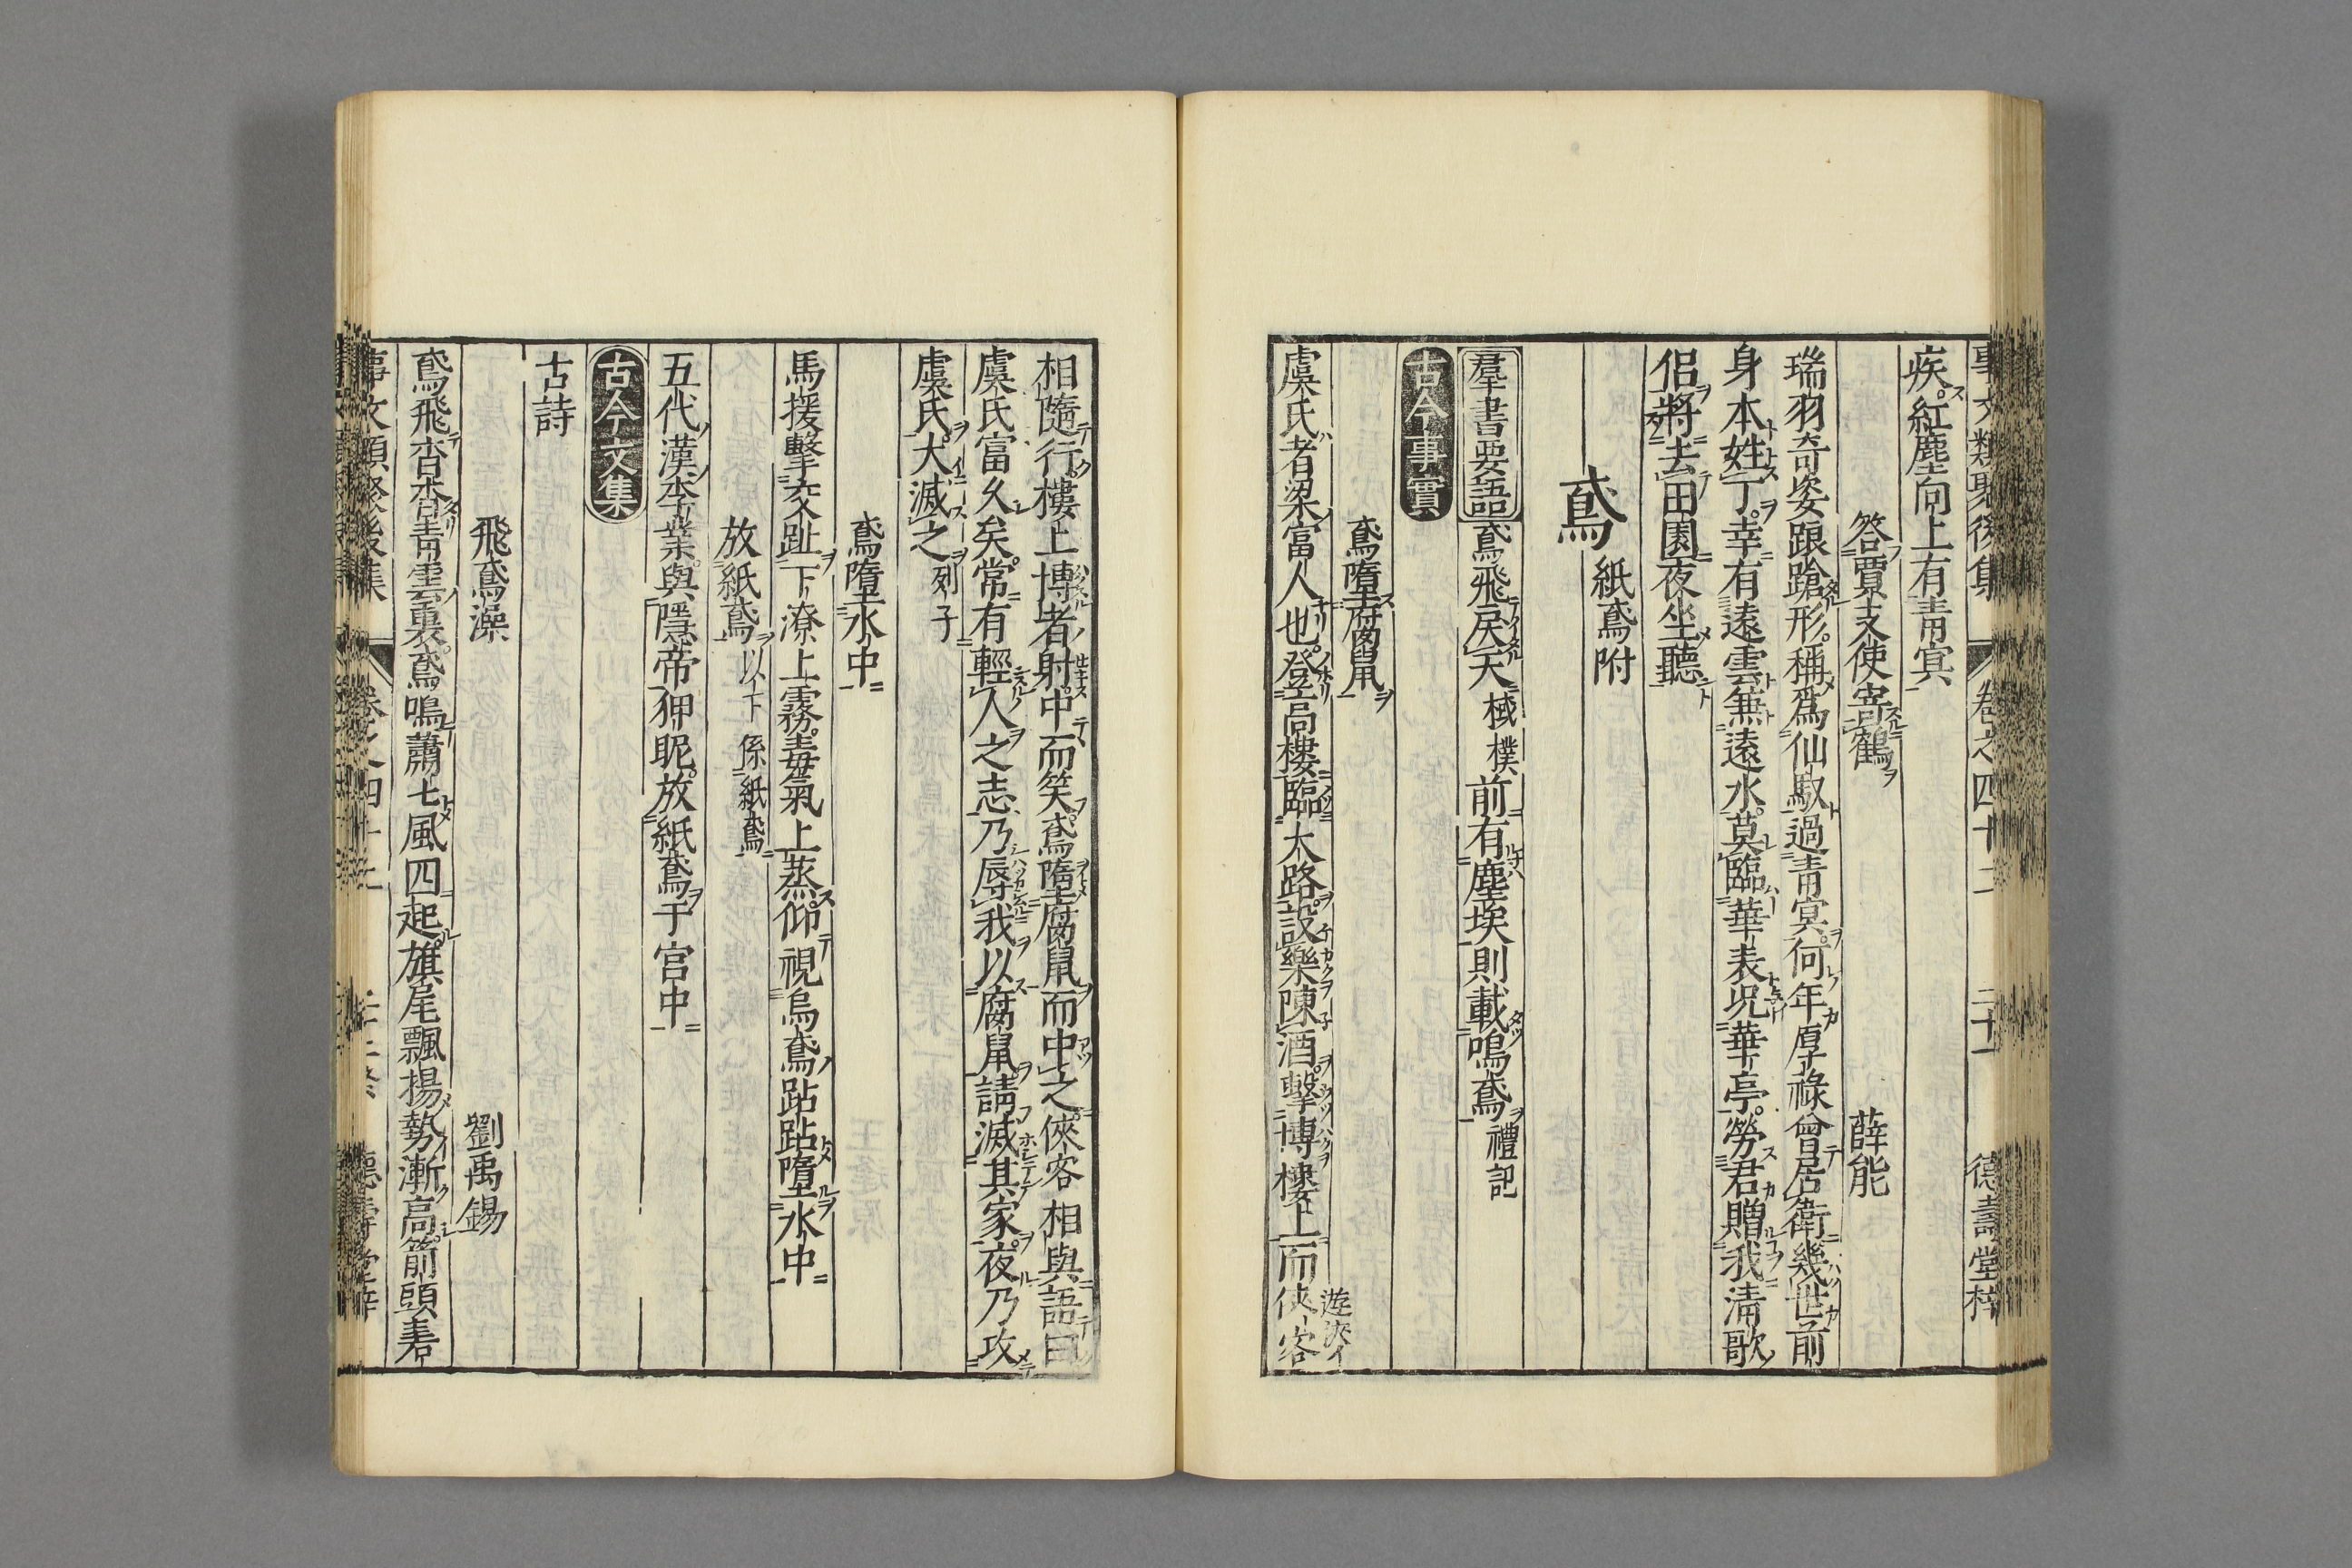 事文類聚後集 卷之四十二 二十一 德壽堂梓
疾紅塵向上有青冥
答賈支使寄鶴 薛能
瑞羽奇姿踉蹌形稱爲仙馭過青冥何年厚祿曾居衛幾世前
身本姓丁幸有遠雲兼遠水莫臨華表况華亭勞君贈我清歌
侶將去田園夜坐聽
鳶 紙鳶附
羣書要語 鳶飛戾天 棫樸 前有塵埃則載鳴鳶 禮記
古今事實
鳶墮腐鼠
虞氏者梁富人也登高樓臨大路設樂陳酒擊博樓上而俠客 遊俠
相隨行樓上博者射中而笑鳶墮腐鼠而中之俠客相與語曰
虞氏富久矣常有輕人之志乃辱我以腐鼠請滅其家夜乃攻
虞氏大滅之 列子
鳶墮水中
馬援擊交趾下潦上霧毒氣上蒸仰視烏鳶跕跕墮水中
放紙鳶 以下係紙鳶
五代漢李業與隱帝狎昵放紙鳶于宮中
古今文集
古詩
飛鳶操 劉禹錫
鳶飛杳杳青雲裏鳶鳴蕭七風四起旗尾飄揚勢漸高箭頭砉